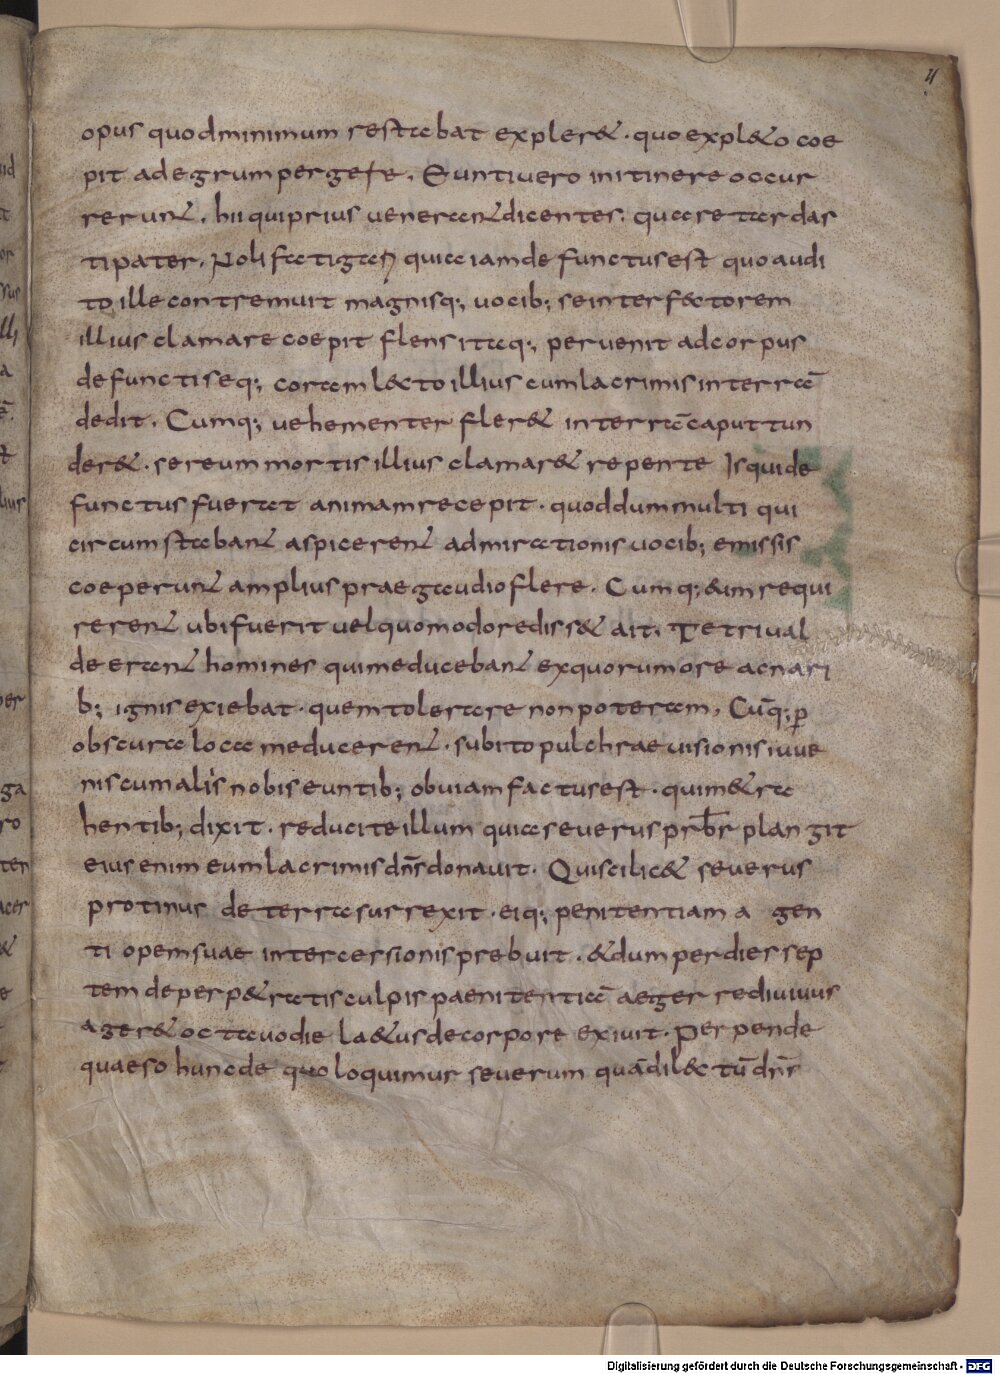 4
opus quod minimum restabat expler&. quo expl&o coe
pit ad egrum pergere. Eunti vero in itinere occur
rerunt, hii qui prius venerant dicentes. quare tardas
ti pater. Noli fatigari quia iam defunctus est quo audi
to ille contremuit magnisq; vocib; se interfectorem
illius clamare coepit flens itaq; pervenit ad corpus
defuncti seq; coram lecto illius cum lacrimis in terrā
dedit. Cumq; vehementer fler& in terrā caput tun
der&. se reum mortis illius clamar& repente Is qui de
functus fuerat animam recepit. quod dum multi qui
circumstabant aspicerent admirationis vocib; emissis
coeperunt amplius prae gaudio flere. Cumq; eum requi
rerent ubi fuerit vel quomodo rediss& ait. Tetri val
de erant homines qui me ducebant ex quorum ore ac nari
b; ignis exiebat. quem tolerare non poteram. Cūq; p̱
obscura loca me ducerent. subito pulchrae visionis iuve
nis cum aliis nobis euntib; obviam factus est. qui me tra
hentib; dixit. reducite illum quia severus prbr̄ plangit
eius enim eum lacrimis dn̄s donavit. Qui scilic& severus
protinus de terra surrexit. eiq; penitentiam agen
ti opem suae intercessionis prebuit. & dum per dies sep
tem de perp&ratis culpis paenitentiā aeger redivivus
ager& octavo die la&us de corpore exivit. Perpende
quaeso hunc de quo loquimur severum quā dilectū dn̄s
Digitalisierung gefördert durch die Deutsche Forschungsgemeinschaft - DFG